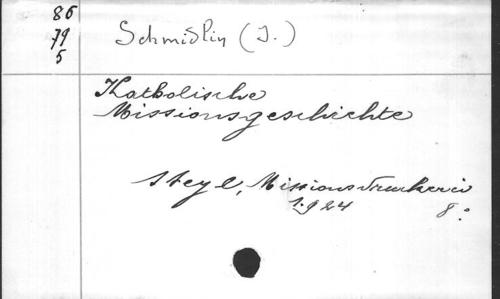 86
79
5
Schmidlin (J.)
Katholische
Missionsgeschichte
Steyl, Missionsdruckerei
1924 8°